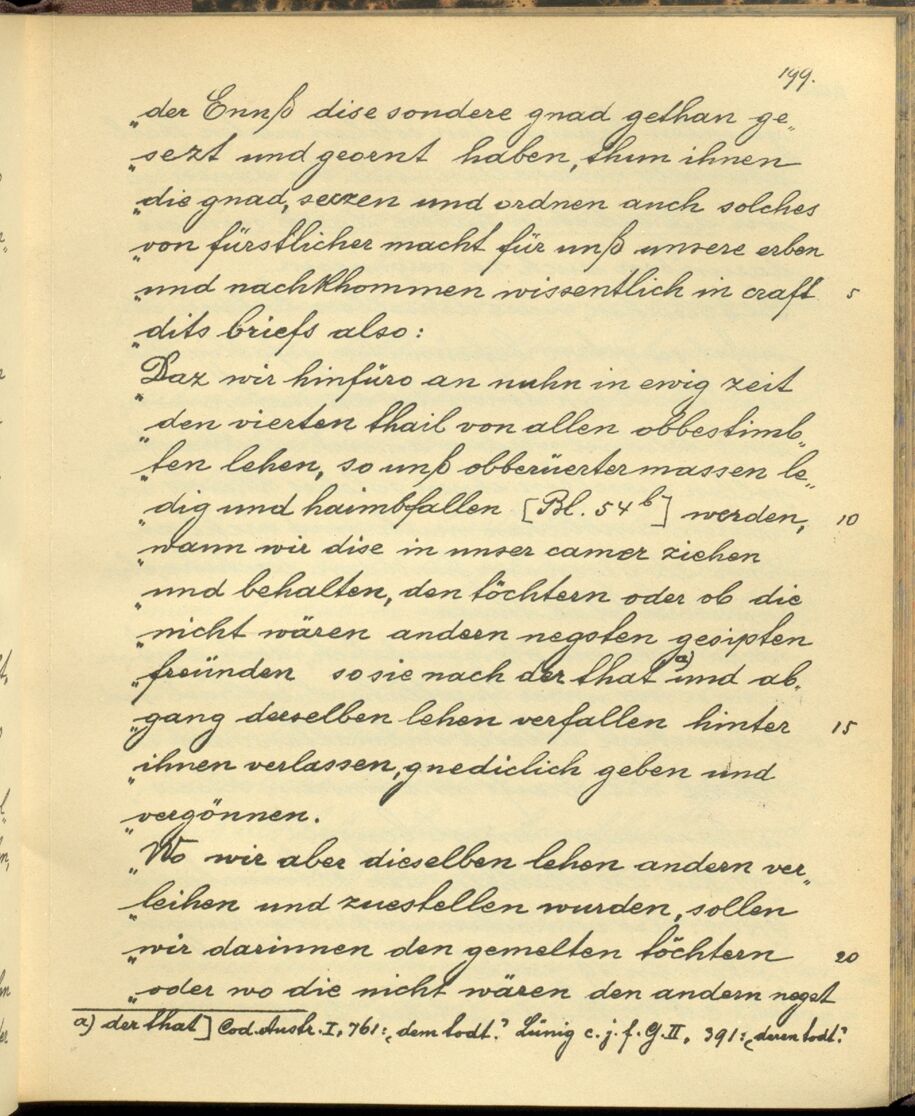 199.
„der Ennß dise sondere gnad gethan ge„
„sezt und geornt haben, thun ihnen
„die gnad, seczen und ordnen auch solches
„von fürstlicher macht für unß unsere erben
„und nachkhommen wissentlich in craft 5
„dits briefs also:
„Daz wir hinfüro an nuhn in ewig zeit
„den vierten thail von allen obbestimb„
„ten lehen, so unß obberüerter massen le„
„dig und haimbfallen [Bl. 54 b] werden, 10
„wann wir dise in unser camer ziehen
„und behalten, den töchtern oder ob die
„nicht wären andern negsten gesipten
„freünden so sie nach der that a) und ab„
„gang derselben lehen verfallen hinter 15
„ihnen verlassen, gnediclich geben und
„vergönnen.
„Wo wir aber dieselben lehen andern ver„
„leihen und zuestellen wurden, sollen
„wir darinnen den gemelten töchtern 20
„oder wo die nicht wären den andern negst
a) der that] Cod. Austr. I, 761: „dem todt.“ Lünig c. j. f. G. II, 391: „deren todt.“